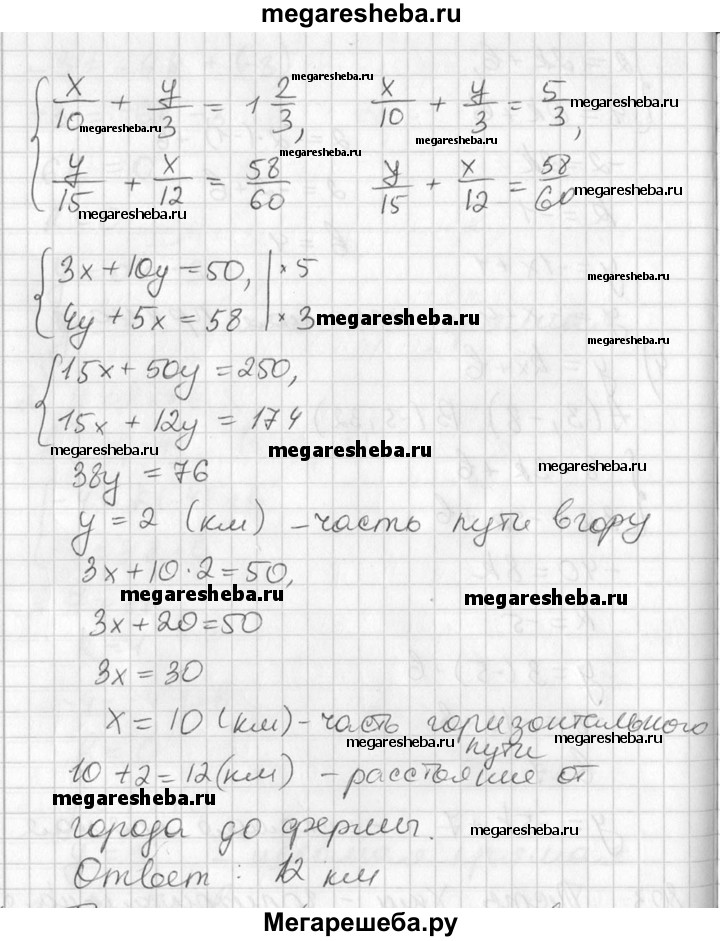 megaresheba.ru
x/10 + y/3 = 1 2/3, x/10 + y/3 = 5/3,
megaresheba.ru
megaresheba.ru
megaresheba.ru
megaresheba.ru
y/15 + x/12 = 58/60 y/15 + x/12 = 58/60
megaresheba.ru
megaresheba.ru
3x + 10y = 50, | × 5
megaresheba.ru
4y + 5x = 58 | × 3
megaresheba.ru
megaresheba.ru
15x + 50y = 250,
15x + 12y = 174
megaresheba.ru
megaresheba.ru
megaresheba.ru
38y = 76
y = 2 (км) – часть пути вгору
3x + 10 · 2 = 50,
megaresheba.ru
megaresheba.ru
3x + 20 = 50
3x = 30
x = 10 (км) – часть горизонтального
пути
megaresheba.ru
megaresheba.ru
10 + 2 = 12 (км) – расстояние от
megaresheba.ru
города до фермы.
megaresheba.ru
Ответ: 12 км
Мегарешеба.ру